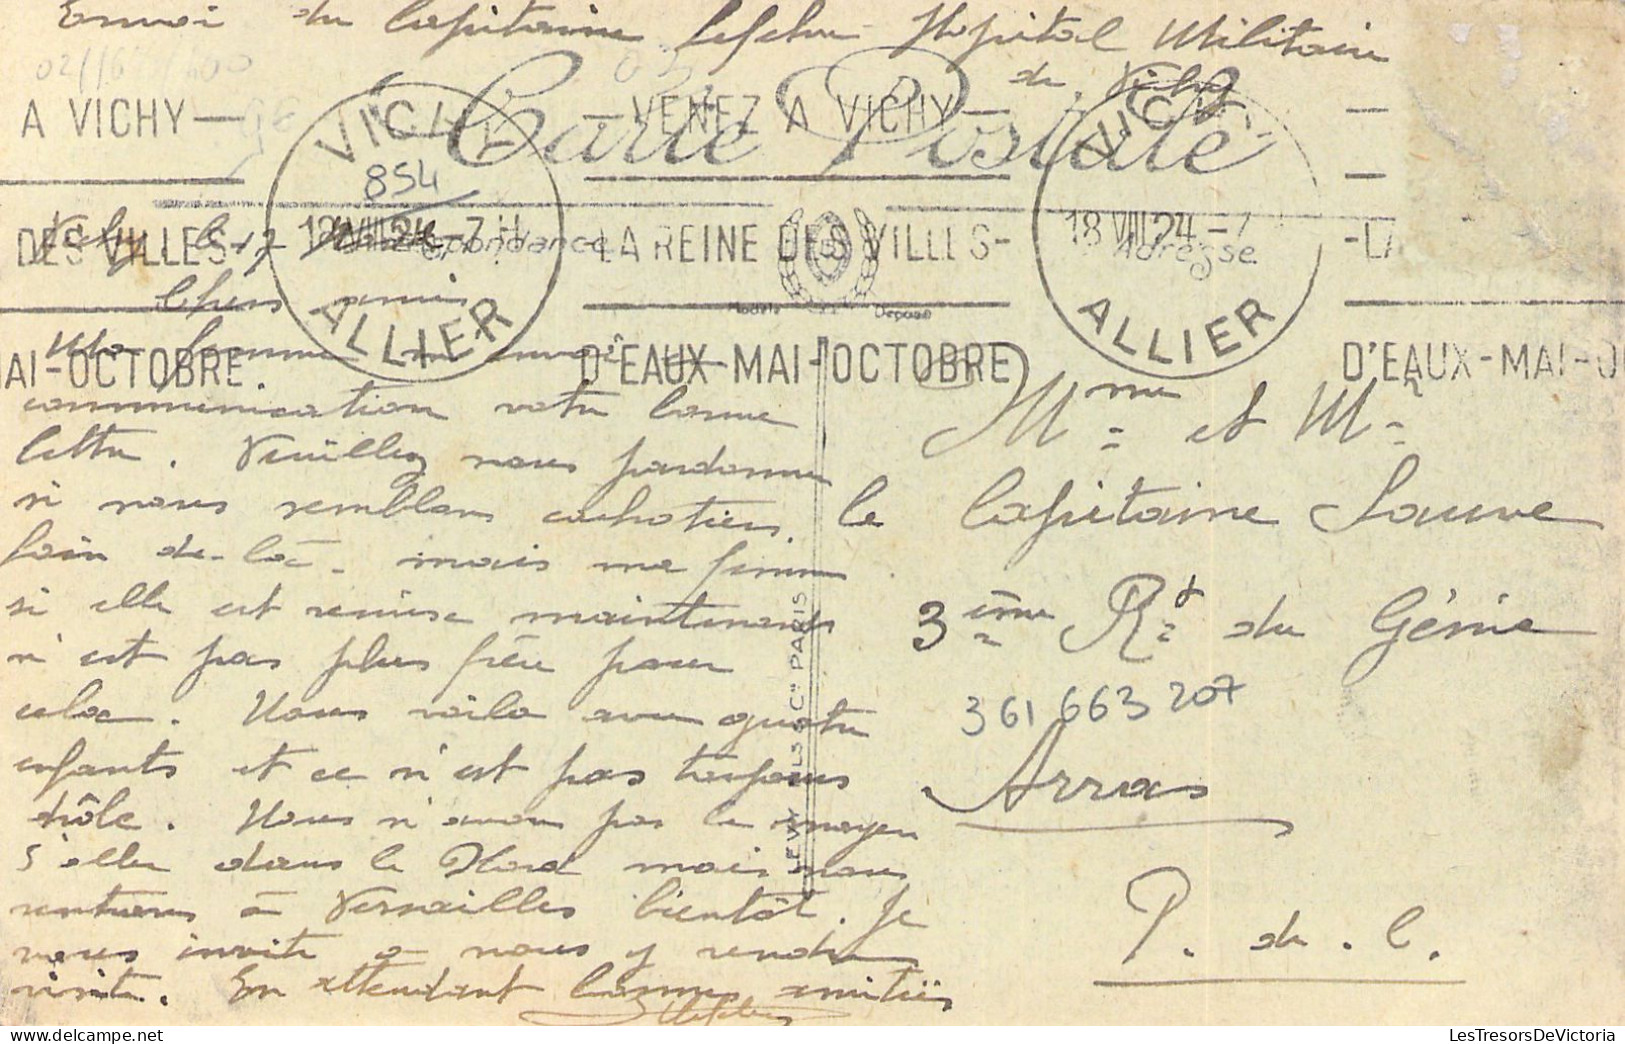 Envoi du Capitaine Lefebvre Hopital Militaire
de Vichy
Carte Postale
A VICHY—
—VENEZ A VICHY—
VICHY
854
18 VIII 24 -7
ALLIER
VICHY
18 VIII 24 -7
ALLIER
DES VILLES-
-LA REINE DES VILLES-
-LA
MAI-OCTOBRE.
D'EAUX-MAI-OCTOBRE
D'EAUX-MAI-O
Correspondance
Adresse
Modèle Déposé
LEVY FILS & Cie PARIS
Vichy le 17
Chers amis
Ma femme m'envoie
communication votre bonne
lettre. Veuillez nous pardonner
si nous semblons cachotiers.
Loin de-là - mais ma femme
si elle est remise maintenant
n'est pas plus fière pour
cela. Nous voila avec quatre
enfants et ce n'est pas toujours
drôle. Nous n'avons pas le moyen
d'aller dans le Nord mais nous
rentrons à Versailles bientôt. Je
vous invite a nous y rendre
visite. En attendant bonnes amitiés
Lefebvre
Mme et Mr
le Capitaine Sauve
3ème Rt du Génie
361 663 207
Arras
P. de. C.
LesTresorsDeVictoria